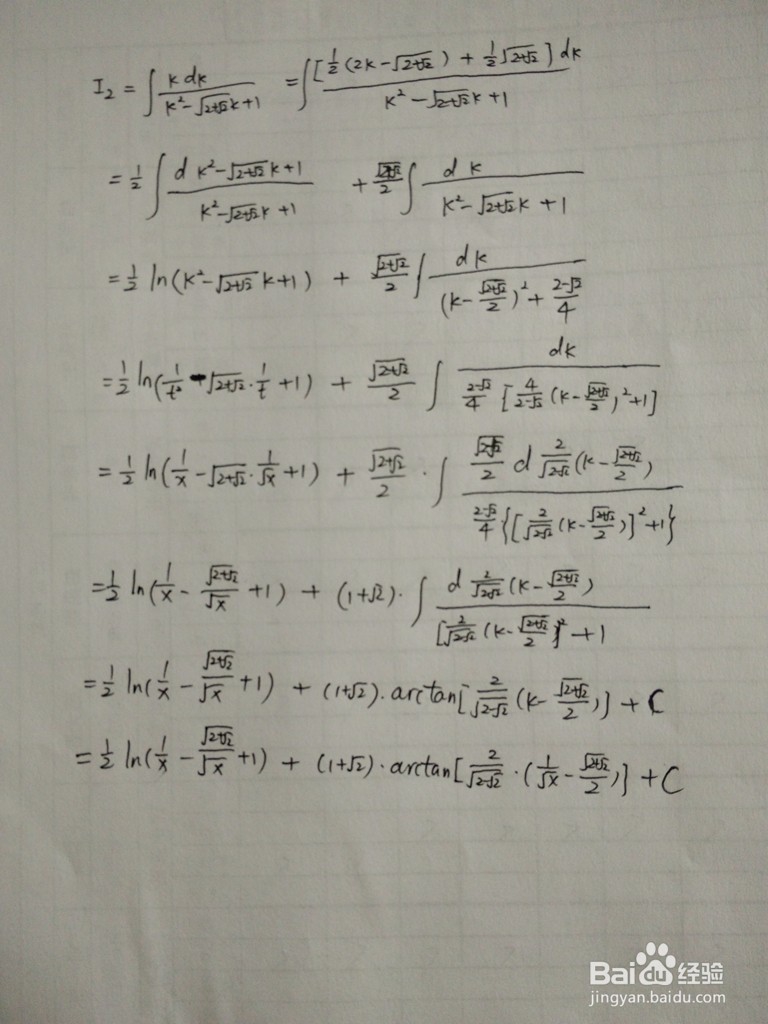 I₂ = ∫ k dk / (k² - √(2+√2) k + 1) = ∫ [½(2k - √(2+√2)) + ½√(2+√2)] dk / (k² - √(2+√2) k + 1)
= ½ ∫ d k² - √(2+√2) k + 1 / (k² - √(2+√2) k + 1) + √(2+√2)/2 ∫ dk / (k² - √(2+√2) k + 1)
= ½ ln(k² - √(2+√2) k + 1) + √(2+√2)/2 ∫ dk / ((k - √(2+√2)/2)² + (2-√2)/4)
= ½ ln(1/t² - √(2+√2) · 1/t + 1) + √(2+√2)/2 ∫ dk / ((2-√2)/4 [4/(2-√2) (k - √(2+√2)/2)² + 1])
= ½ ln(1/x - √(2+√2) · 1/√x + 1) + √(2+√2)/2 · ∫ √(2-√2)/2 d 2/√(2-√2) (k - √(2+√2)/2) / ((2-√2)/4 {[2/√(2-√2) (k - √(2+√2)/2)]² + 1})
= ½ ln(1/x - √(2+√2)/√x + 1) + (1+√2) · ∫ d 2/√(2-√2) (k - √(2+√2)/2) / ([2/√(2-√2) (k - √(2+√2)/2)]² + 1)
= ½ ln(1/x - √(2+√2)/√x + 1) + (1+√2) · arctan[2/√(2-√2) (k - √(2+√2)/2)] + C
= ½ ln(1/x - √(2+√2)/√x + 1) + (1+√2) · arctan[2/√(2-√2) · (1/√x - √(2+√2)/2)] + C
Baidu经验
jingyan.baidu.com